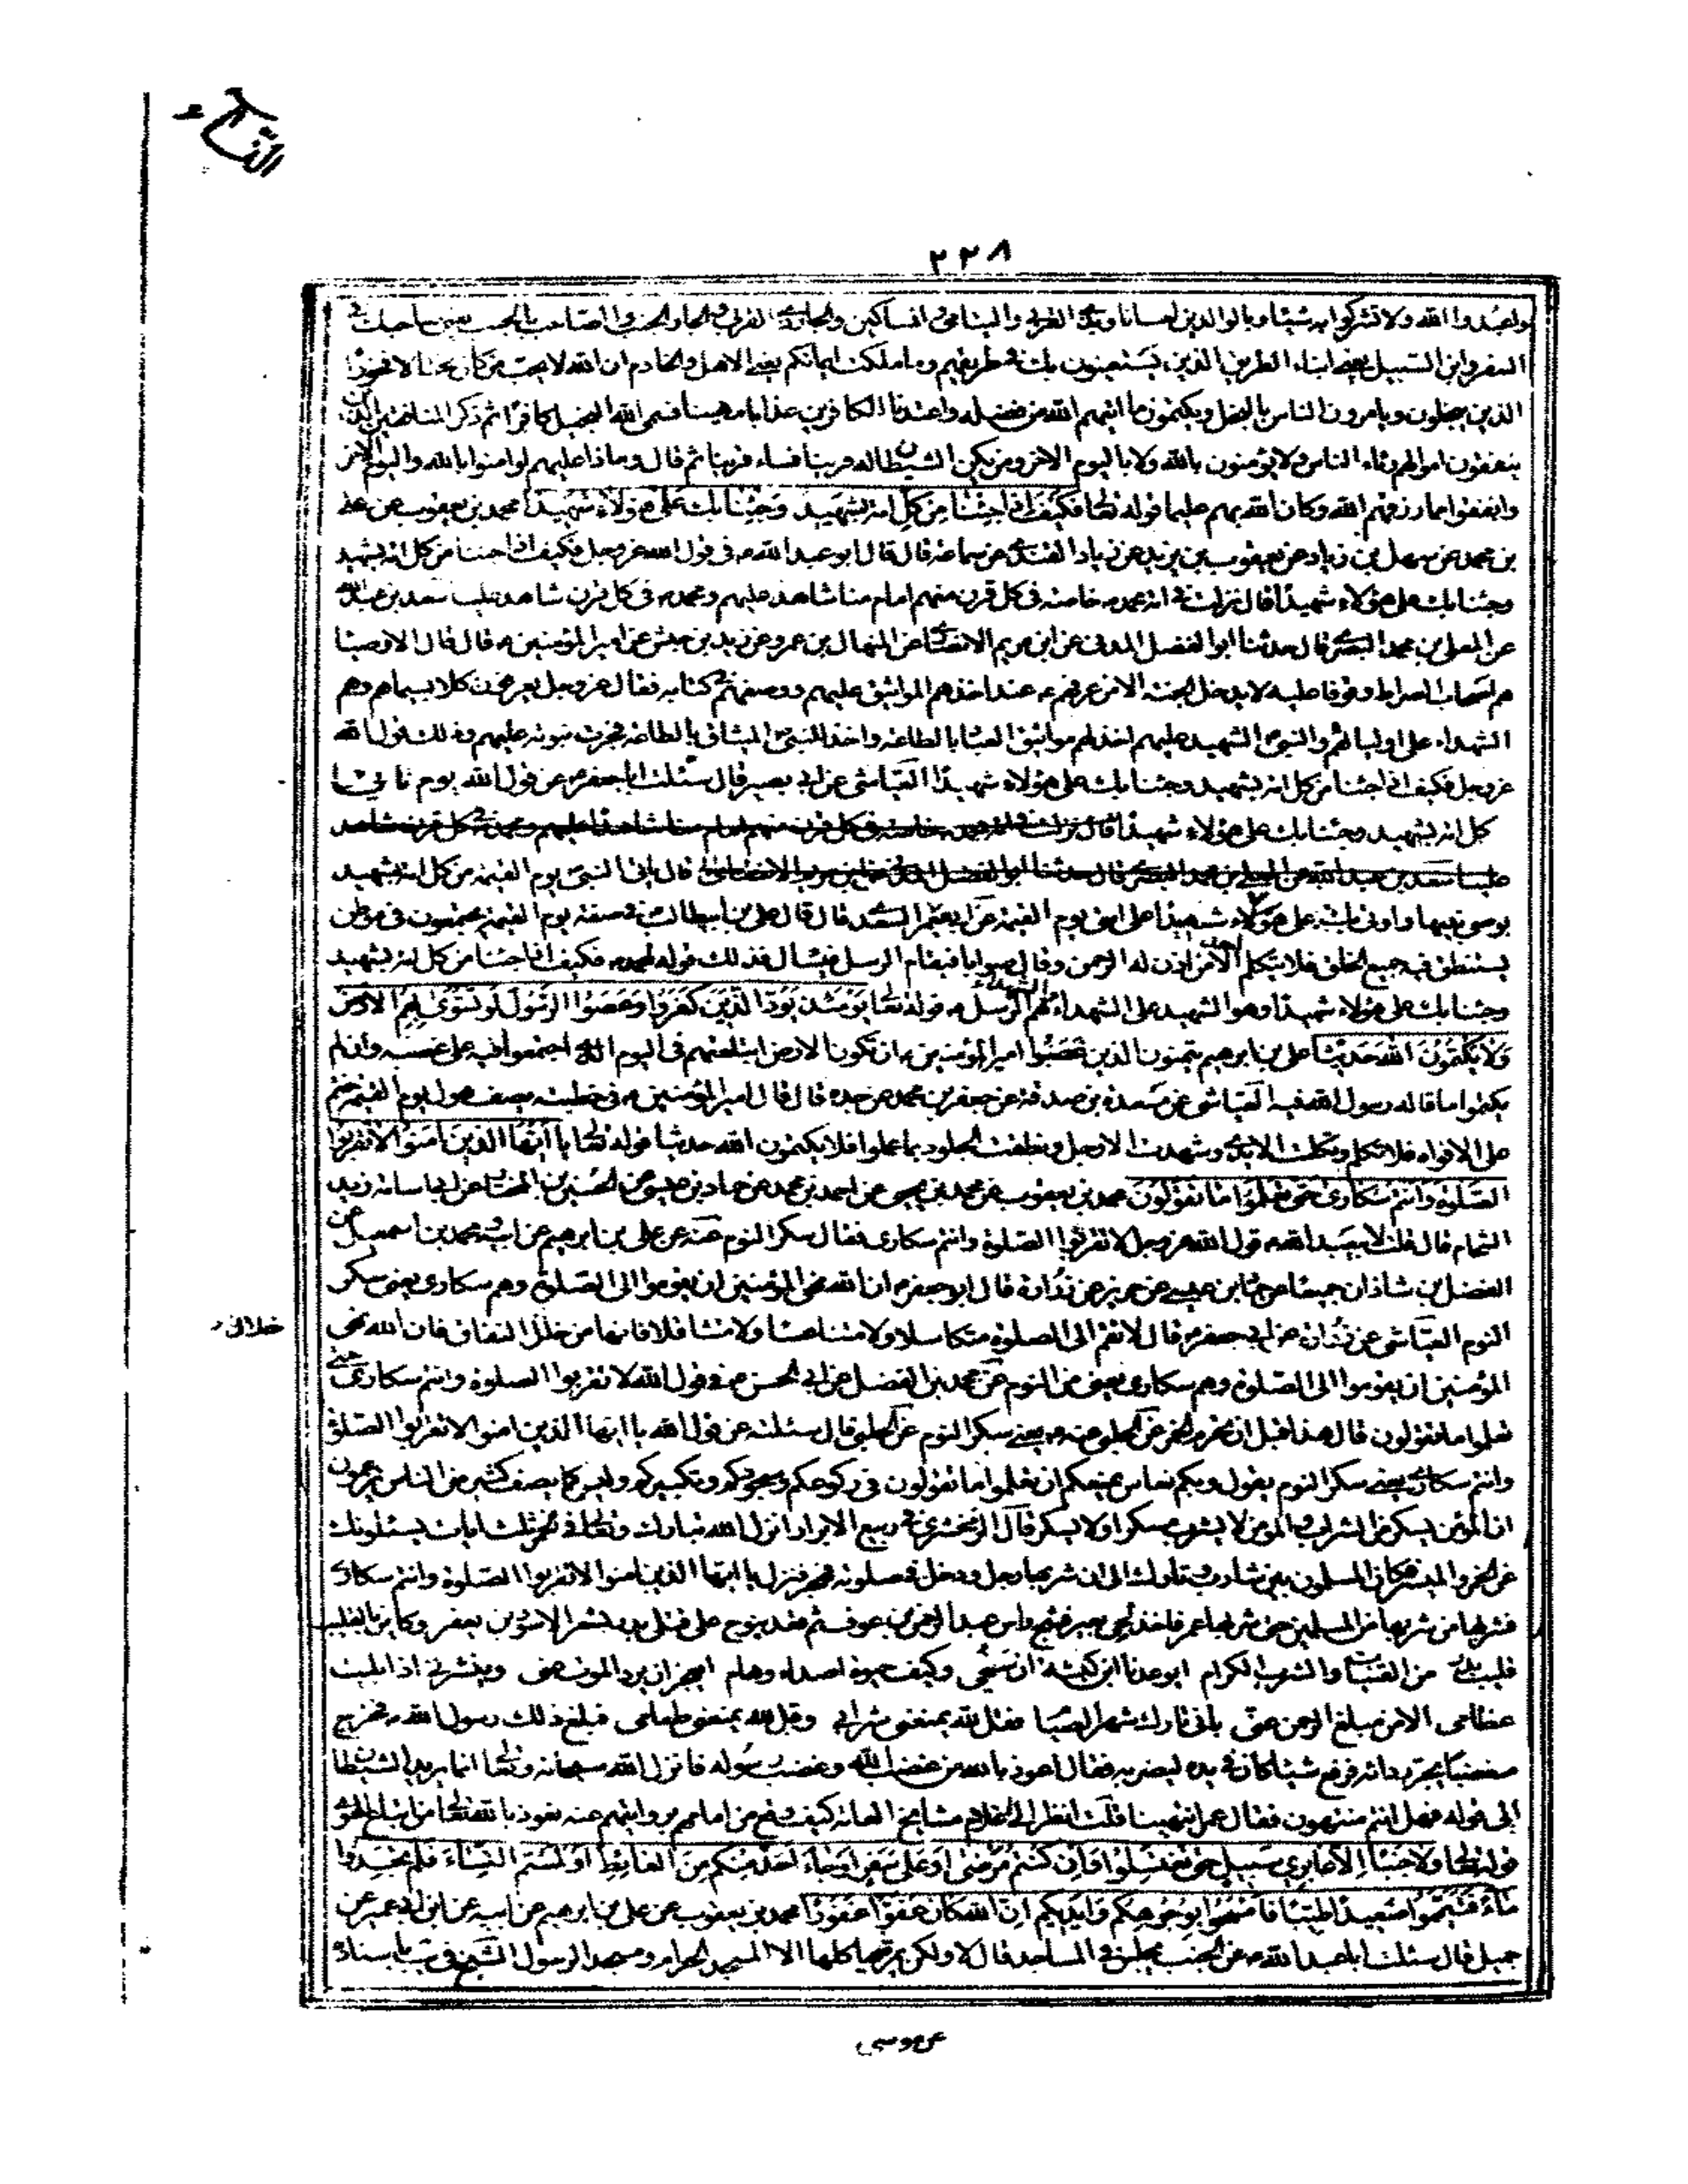 النساء
٢٢٨
واعبدوا الله ولا تشركوا به شيئا وبالوالدين احسانا وبذى القربى واليتامى والمساكين والجار ذى القربى والجار الجنب والصاحب بالجنب يعنى صاحبك فى
السفر وابن السبيل يعنى ابناء الطريق الذين يستعينون بك فى طريقهم وما ملكت ايمانكم يعنى الاهل والخادم ان الله لا يحب من كان مختالا فخورا
الذين يبخلون ويامرون الناس بالبخل ويكتمون ما اتيهم الله من فضله واعتدنا للكافرين عذابا مهينا فسمى الله البخيل كافرا ثم ذكر المنافقين الذين
ينفقون اموالهم رئاء الناس ولا يؤمنون بالله ولا باليوم الاخر ومن يكن الشيطان له قرينا فساء قرينا ثم قال وماذا عليهم لو امنوا بالله واليوم الاخر
وانفقوا مما رزقهم الله وكان الله بهم عليما قوله تعالى فكيف اذا جئنا من كل امة بشهيد وجئنا بك على هؤلاء شهيدا محمد بن يعقوب عن على
بن محمد عن سهل بن زياد عن يعقوب بن يزيد عن زياد القندى عن سماعة قال قال ابو عبد الله ع فى قول الله عز وجل فكيف اذا جئنا من كل امة بشهيد
وجئنا بك على هؤلاء شهيدا قال نزلت فى امة محمد ص خاصة فى كل قرن منهم امام منا شاهد عليهم ومحمد ص فى كل قرن شاهد علينا سعد بن عبد الله
عن المعلى بن محمد البصرى قال حدثنا ابو الفضل المدنى عن ابن مريم الانصارى عن المنهال بن عمرو عن زيد بن حبيش عن امير المؤمنين ع قال قال الاوصياء
هم اصحاب الصراط وقوفا عليه لا يدخل الجنة الا من عرفهم عند اخذهم المواثيق عليهم ووصفهم فى كتابه فقال عز وجل يعرفون كلا بسيماهم وهم
الشهداء على اوليائهم والنبى الشهيد عليهم اخذ لهم مواثيق العباد بالطاعة واخذ النبى الميثاق بالطاعة فجرت نبوته عليهم وذلك قول الله
عز وجل فكيف اذا جئنا من كل امة بشهيد وجئنا بك على هؤلاء شهيدا العياشى عن ابى بصير قال سئلت ابا جعفر ع عن قول الله يوم ناتى
كل امة بشهيد وجئنا بك على هؤلاء شهيدا قال نزلت فى امة محمد ص خاصة فى كل قرن منهم امام منا شاهدا عليهم ومحمد ص فى كل قرن شاهد
علينا سعد بن عبد الله عن المعلى بن محمد البصرى قال حدثنا ابو الفضل المدنى عن ابن مريم الانصارى قال ياتى النبى يوم القيمة من كل امة بشهيد
بوصى نبيها واوتى بك على هؤلاء شهيدا على امتى يوم القيمة عن ابى معمر السعدى قال قال على بن ابيطالب ع فى صفة يوم القيمة يجتمعون فى موطن
يستنطق فيه جميع الخلق فلا يتكلم احد الا من اذن له الرحمن وقال صوابا فيقام الرسل فيسال فذلك قوله لمحمد ص فكيف اذا جئنا من كل امة بشهيد
وجئنا بك على هؤلاء شهيدا وهو الشهيد على الشهداء والشهداء هم الرسل ع قوله تعالى يومئذ يود الذين كفروا وعصوا الرسول لو تسوى بهم الارض
ولا يكتمون الله حديثا على بن ابرهيم يتمنون الذين غصبوا امير المؤمنين ع ان تكون الارض ابتلعتهم فى اليوم الذى اجتمعوا فيه على غصبه وان لم
يكتموا ما قاله رسول الله فيه العياشى عن مسعدة بن صدقة عن جعفر بن محمد عن جده قال قال امير المؤمنين ع فى خطبته يصف هول يوم القيمة ختم
على الافواه فلا تكلم وتكلمت الايدى وشهدت الارجل ونطقت الجلود بما عملوا فلا يكتمون الله حديثا قوله تعالى يا ايها الذين امنوا لا تقربوا
الصلوة وانتم سكارى حتى تعلموا ما تقولون محمد بن يعقوب عن محمد بن يحيى عن احمد بن محمد عن حماد بن عيسى عن الحسين بن المختار عن ابى اسامة زيد
الشحام قال قلت لابيعبد الله ع قول الله عز وجل لا تقربوا الصلوة وانتم سكارى فقال سكر النوم عنه عن على بن ابرهيم عن ابيه ومحمد بن اسمعيل عن
الفضل بن شاذان جميعا عن حماد بن عيسى عن حريز عن زرارة قال ابو جعفر ع ان الله نهى المؤمنين ان يقوموا الى الصلوة وهم سكارى يعنى سكر
النوم العياشى عن زرارة عن ابى جعفر ع قال لا تقم الى الصلوة متكاسلا ولا متناعسا ولا متثاقلا فانها من خلل النفاق فان الله نهى
خلال
المؤمنين ان يقوموا الى الصلوة وهم سكارى يعنى من النوم عن محمد بن الفضل عن ابى الحسن ع فى قول الله لا تقربوا الصلوة وانتم سكارى حتى
تعلموا ما تقولون قال هذا قبل ان تحرم الخمر عن الحلبى عنه ع يعنى سكر النوم عن الحلبى قال سئلته عن قول الله يا ايها الذين امنوا لا تقربوا الصلوة
وانتم سكارى يعنى سكر النوم يقول وبكم نعاس يمنعكم ان تعلموا ما تقولون فى ركوعكم وسجودكم وتكبيركم وليس كما يصف كثير من الناس يزعمون
ان المؤمن يسكر من الشراب والمؤمن لا يشرب مسكرا ولا يسكر قال الزمخشرى فى ربيع الابرار انزل الله تبارك وتعالى فى الخمر ثلث ايات يسئلونك
عن الخمر والميسر فكان المسلمون بين شارب وتارك الى ان شربها رجل ودخل فى صلوته فهجر فنزل يا ايها الذين امنوا لا تقربوا الصلوة وانتم سكارى
فشربها من شربها من المسلمين حتى شربها عمر فاخذ لحى بعير فشج راس عبد الرحمن بن عوف ثم قعد ينوح على قتلى بدر بشعر الاسود بن يعفر وكاين بالقليب
قليب بدر من الفتيان والشرب الكرام ايوعدنا ابن كبشة ان سنحيى وكيف حيوة اصداء وهام ايعجز ان يرد الموت عنى وينشرنى اذا بليت
عظامى الا من مبلغ الرحمن عنى بانى تارك شهر الصيام فقل لله يمنعنى شرابى وقل لله يمنعنى طعامى فبلغ ذلك رسول الله ص فخرج
مغضبا يجر ردائه فرفع شيئا كان فى يده ليضربه فقال اعوذ بالله من غضب الله وغضب رسوله فانزل الله سبحانه وتعالى انما يريد الشيطان
الى قوله فهل انتم منتهون فقال عمر انتهينا قلت انظر الى اعلام مشايخ العامة كيف وقع من امامهم بروايتهم عنه نعوذ بالله تعالى من اتباع الهوى
قوله تعالى ولا جنبا الا عابرى سبيل حتى تغتسلوا وان كنتم مرضى او على سفر او جاء احد منكم من الغائط او لمستم النساء فلم تجدوا
ماء فتيمموا صعيدا طيبا فامسحوا بوجوهكم وايديكم ان الله كان عفوا غفورا محمد بن يعقوب عن على بن ابرهيم عن ابيه عن ابن ابى عمير عن
جميل قال سئلت ابا عبد الله ع عن الجنب يجلس فى المساجد قال لا ولكن يمر فيها كلها الا المسجد الحرام ومسجد الرسول الشيخ فى يب باسناده
عن موسى